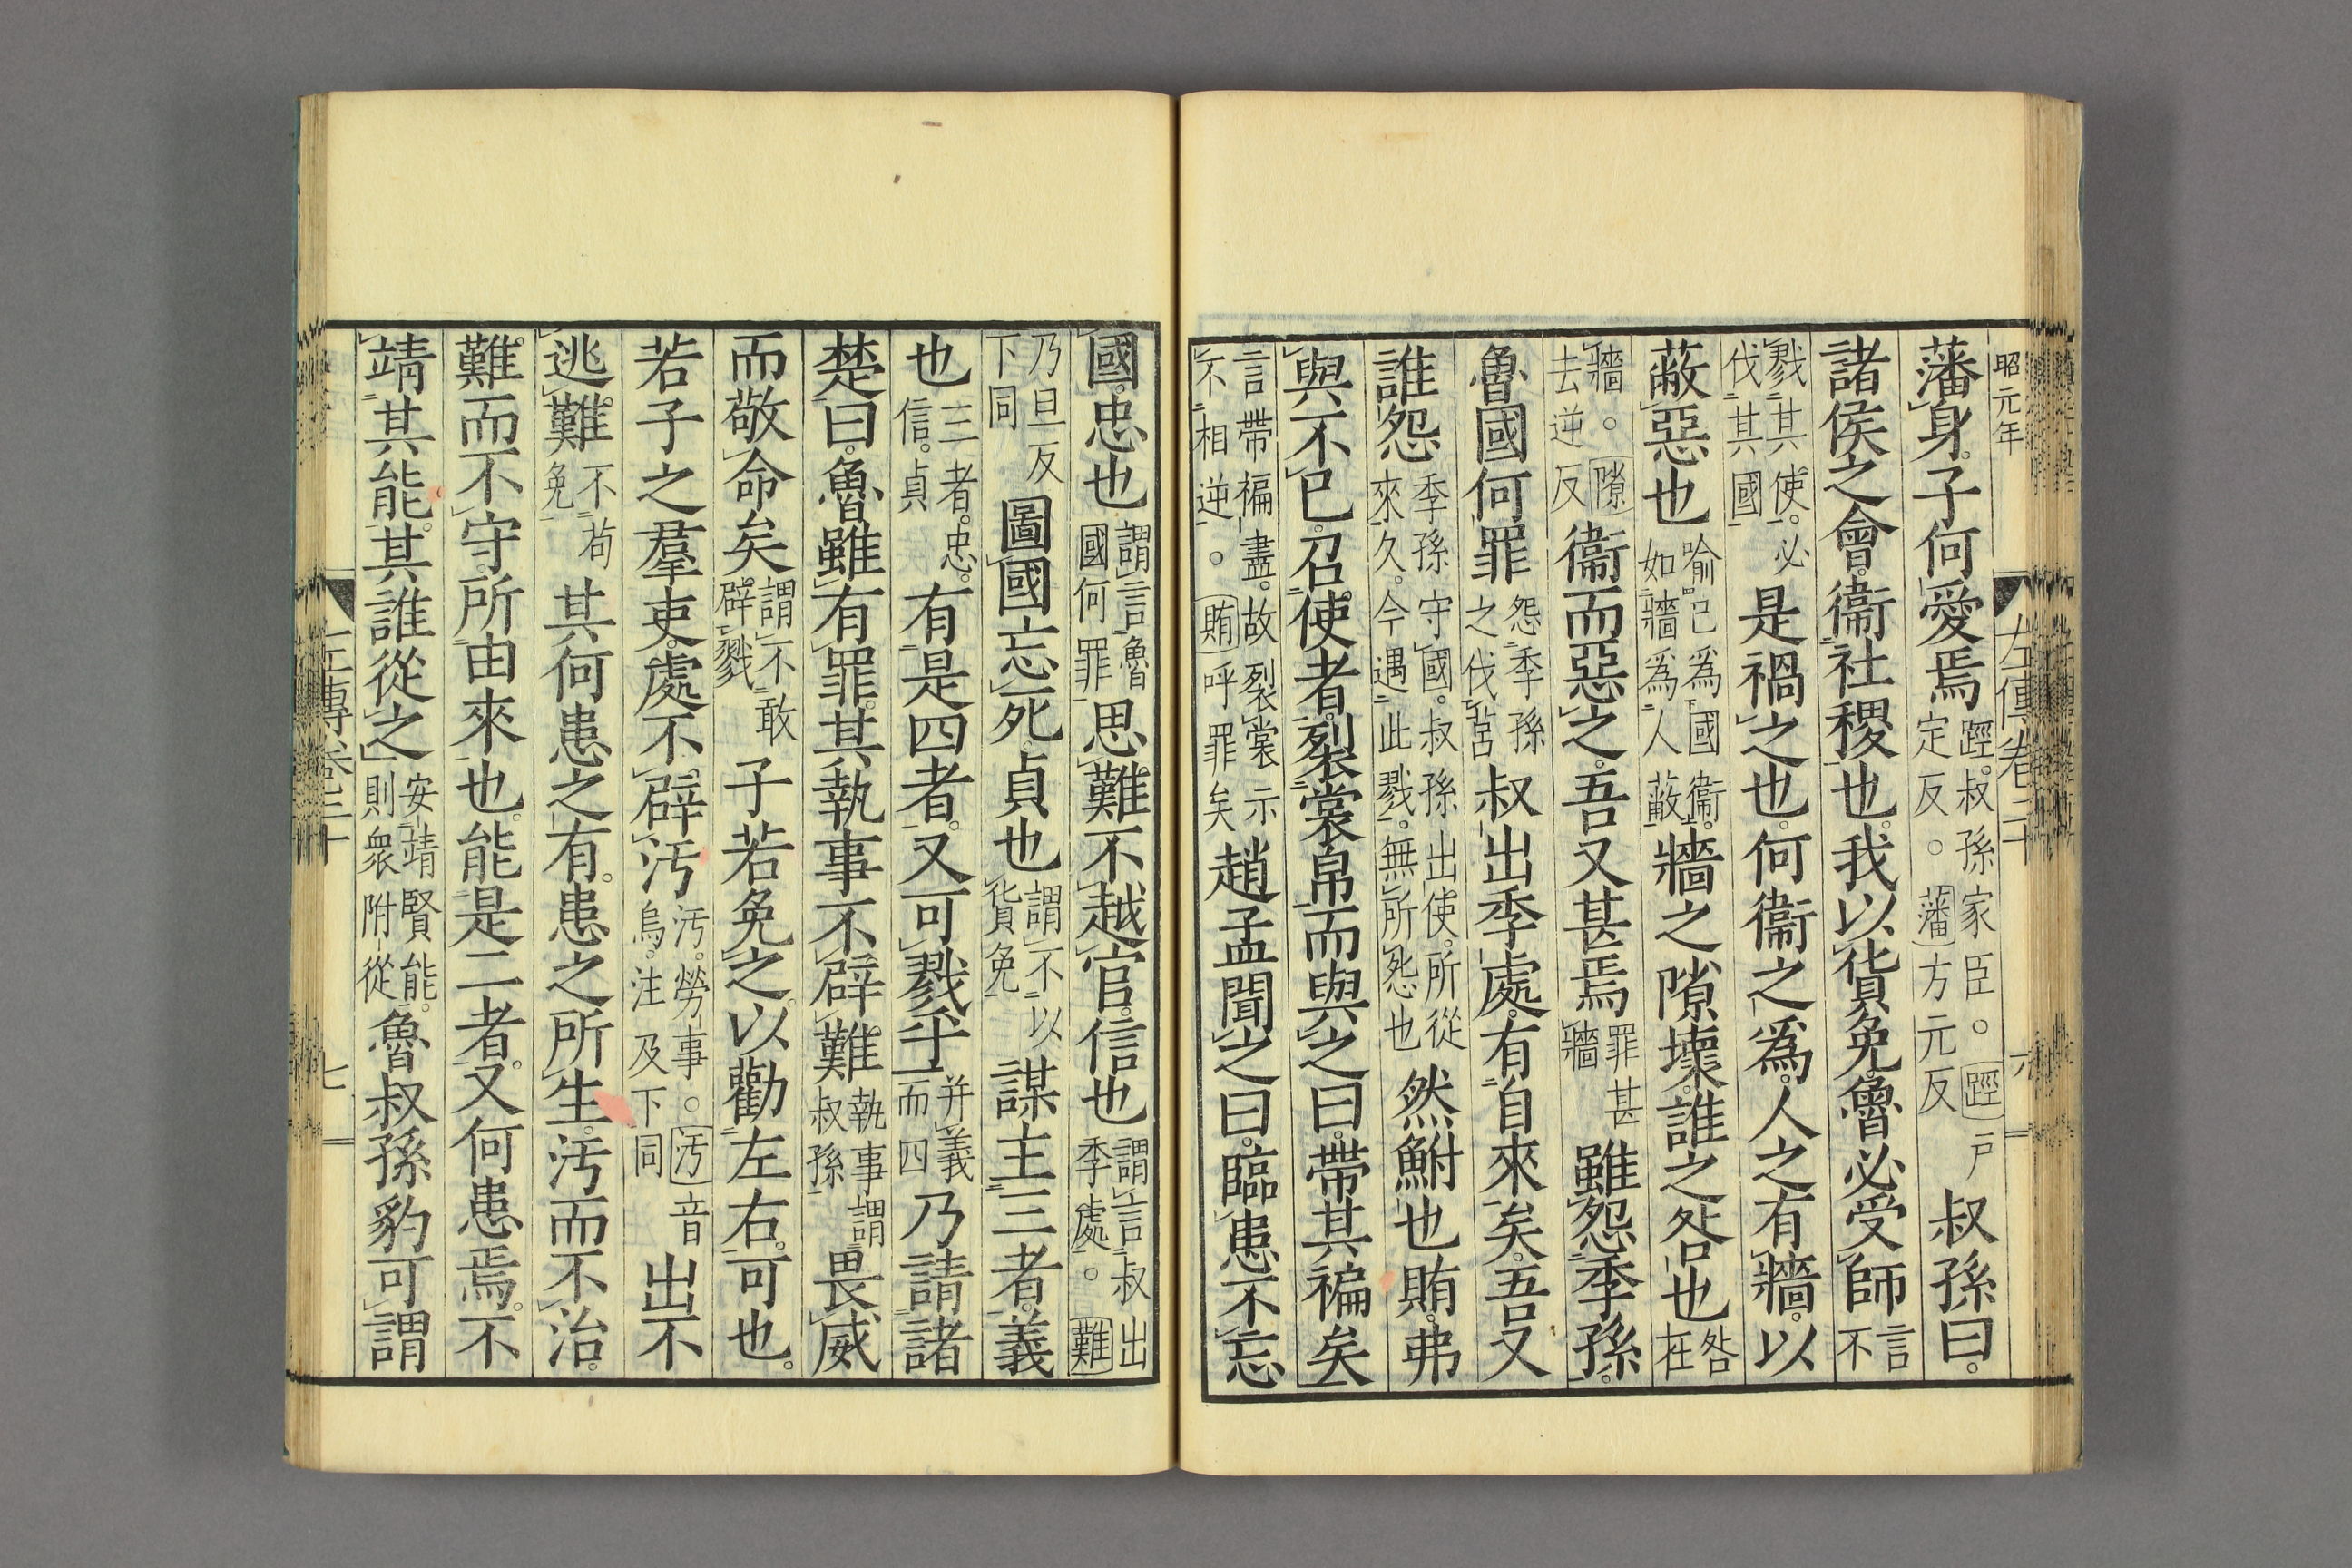 昭元年
左傳卷二十
六
藩身。子何愛焉踁。叔孫家臣。踁戸定反。藩方元反叔孫曰。
諸侯之會。衞社稷也。我以貨免。魯必受師言不
戮其使。必伐其國是禍之也。何衞之爲。人之有牆。以
蔽惡也喻己爲國衞。如牆爲人蔽牆之隙壞。誰之咎也咎在
牆。隙去逆反衞而惡之。吾又甚焉罪甚牆雖怨季孫。
魯國何罪怨季孫之伐莒叔出季處。有自來矣。吾又
誰怨季孫守國。叔孫出使。所從來久。今遇此戮。無所怨也然鮒也賄。弗
與不已。召使者。裂裳帛而與之曰。帶其褊矣
言帶褊盡。故裂裳示不相逆。賄呼罪矣趙孟聞之曰。臨患不忘
國。忠也謂言魯國何罪思難不越官。信也謂言叔出季處。難
乃旦反下同圖國忘死。貞也謂不以貨免謀主三者。義
也三者。忠。信。貞有是四者。又可戮乎并義而四乃請諸
楚曰。魯雖有罪。其執事不辟難執事謂叔孫畏威
而敬命矣謂不敢辟戮子若免之。以勸左右。可也。
若子之羣吏。處不辟汚汚。勞事。汚音烏。注及下同出不
逃難不苟免其何患之有。患之所生。汚而不治。
難而不守。所由來也。能是二者。又何患焉。不
靖其能。其誰從之安靖賢能。則衆附從魯叔孫豹可謂
左傳卷二十
七